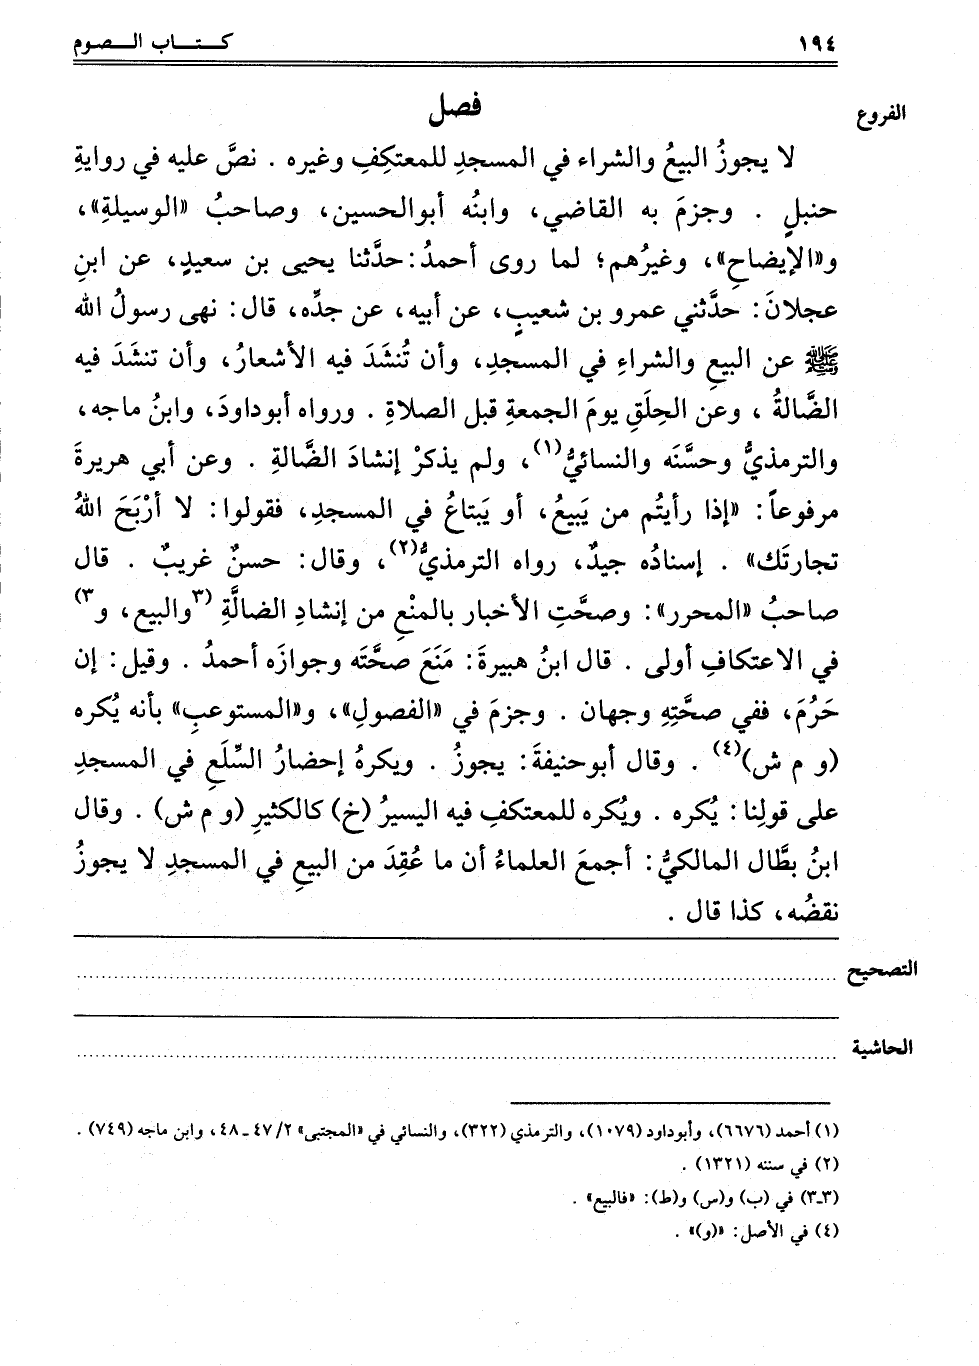 ١٩٤
كـــتـــاب الـــصوم
الفروع
فصل
لا يجوزُ البيعُ والشراء في المسجدِ للمعتكِفِ وغيره . نصَّ عليه في روايةِ
حنبلٍ . وجزمَ به القاضي، وابنُه أبوالحسين، وصاحبُ «الوسيلةِ»،
و«الإيضاحِ»، وغيرُهم؛ لما روى أحمدُ: حدَّثنا يحيى بن سعيدٍ، عن ابنِ
عجلانَ: حدَّثني عمرو بن شعيبٍ، عن أبيه، عن جدِّه، قال: نهى رسولُ الله
ﷺ عن البيعِ والشراءِ في المسجدِ، وأن تُنشَدَ فيه الأشعارُ، وأن تنشَدَ فيه
الضَّالةُ ، وعن الحِلَقِ يومَ الجمعةِ قبل الصلاةِ . ورواه أبوداودَ، وابنُ ماجه،
والترمذيُّ وحسَّنَه والنسائيُّ(١)، ولم يذكرْ إنشادَ الضَّالةِ . وعن أبي هريرةَ
مرفوعاً: «إذا رأيتُم من يَبيعُ، أو يَبتاعُ في المسجدِ، فقولوا: لا أرْبَحَ اللهُ
تجارتَك» . إسنادُه جيدٌ، رواه الترمذيُّ(٢)، وقال: حسنٌ غريبٌ . قال
صاحبُ «المحرر»: وصحَّتِ الأخبار بالمنْعِ من إنشادِ الضالَّةِ (٣والبيع، و٣)
في الاعتكافِ أولى . قال ابنُ هبيرةَ: مَنَعَ صحَّتَه وجوازَه أحمدُ . وقيل: إن
حَرُمَ، ففي صحَّتِهِ وجهان . وجزمَ في «الفصولِ»، و«المستوعبِ» بأنه يُكره
(و م ش)(٤) . وقال أبوحنيفةَ: يجوزُ . ويكرهُ إحضارُ السِّلَعِ في المسجدِ
على قولِنا: يُكره . ويُكره للمعتكفِ فيه اليسيرُ (خ) كالكثيرِ (و م ش) . وقال
ابنُ بطَّال المالكيُّ: أجمعَ العلماءُ أن ما عُقِدَ من البيعِ في المسجدِ لا يجوزُ
نقضُه، كذا قال .
التصحيح
الحاشية
(١) أحمد (٦٦٧٦)، وأبوداود (١٠٧٩)، والترمذي (٣٢٢)، والنسائي في «المجتبى» ٢/ ٤٧ ـ ٤٨، وابن ماجه (٧٤٩) .
(٢) في سننه (١٣٢١) .
(٣ـ٣) في (ب) و(س) و(ط): «فالبيع» .
(٤) في الأصل: «(و)» .